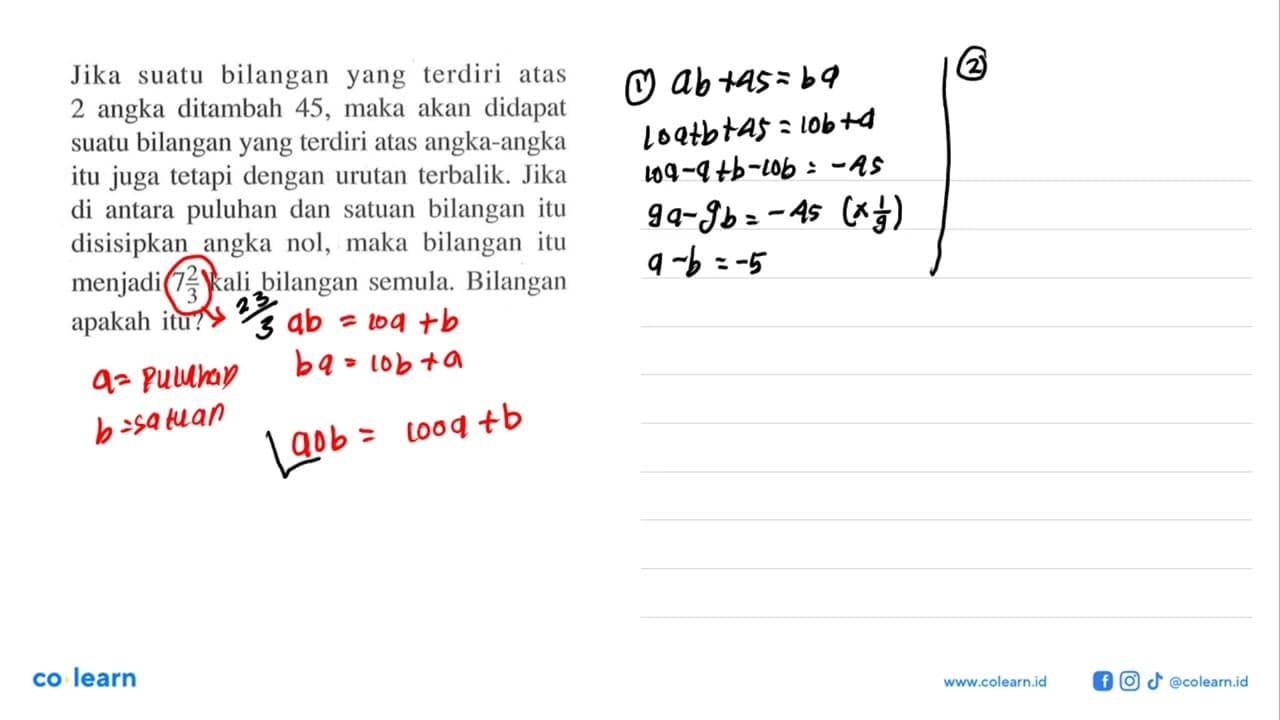 Jika suatu bilangan yang terdiri atas
2 angka ditambah 45, maka akan didapat
suatu bilangan yang terdiri atas angka-angka
itu juga tetapi dengan urutan terbalik. Jika
di antara puluhan dan satuan bilangan itu
disisipkan angka nol, maka bilangan itu
menjadi 7 2/3 kali bilangan semula. Bilangan
apakah itu?
23/3
ab = 10a + b
ba = 10b + a
a = Puluhan
b = satuan
a0b = 100a + b
① ab + 45 = ba
10a + b + 45 = 10b + a
10a - a + b - 10b = -45
9a - 9b = -45 (x 1/9)
a - b = -5
②
co learn
www.colearn.id
@colearn.id